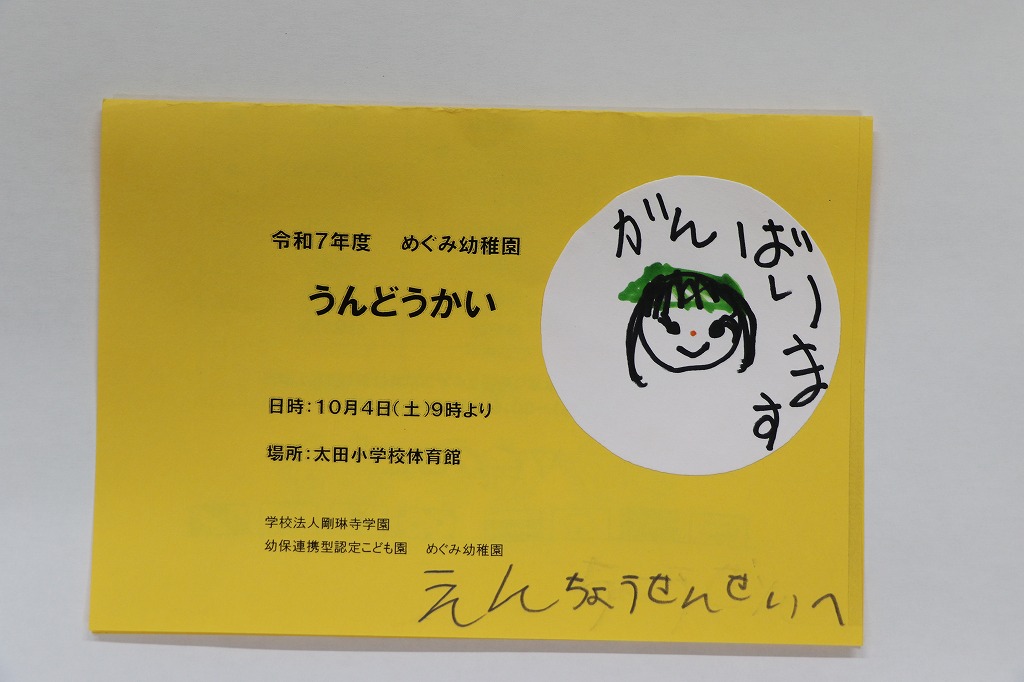 令和7年度　めぐみ幼稚園
うんどうかい
がんばります
日時：10月4日(土)9時より
場所：太田小学校体育館
学校法人剛琳寺学園
幼保連携型認定こども園　めぐみ幼稚園
えんちょうせんせいへ